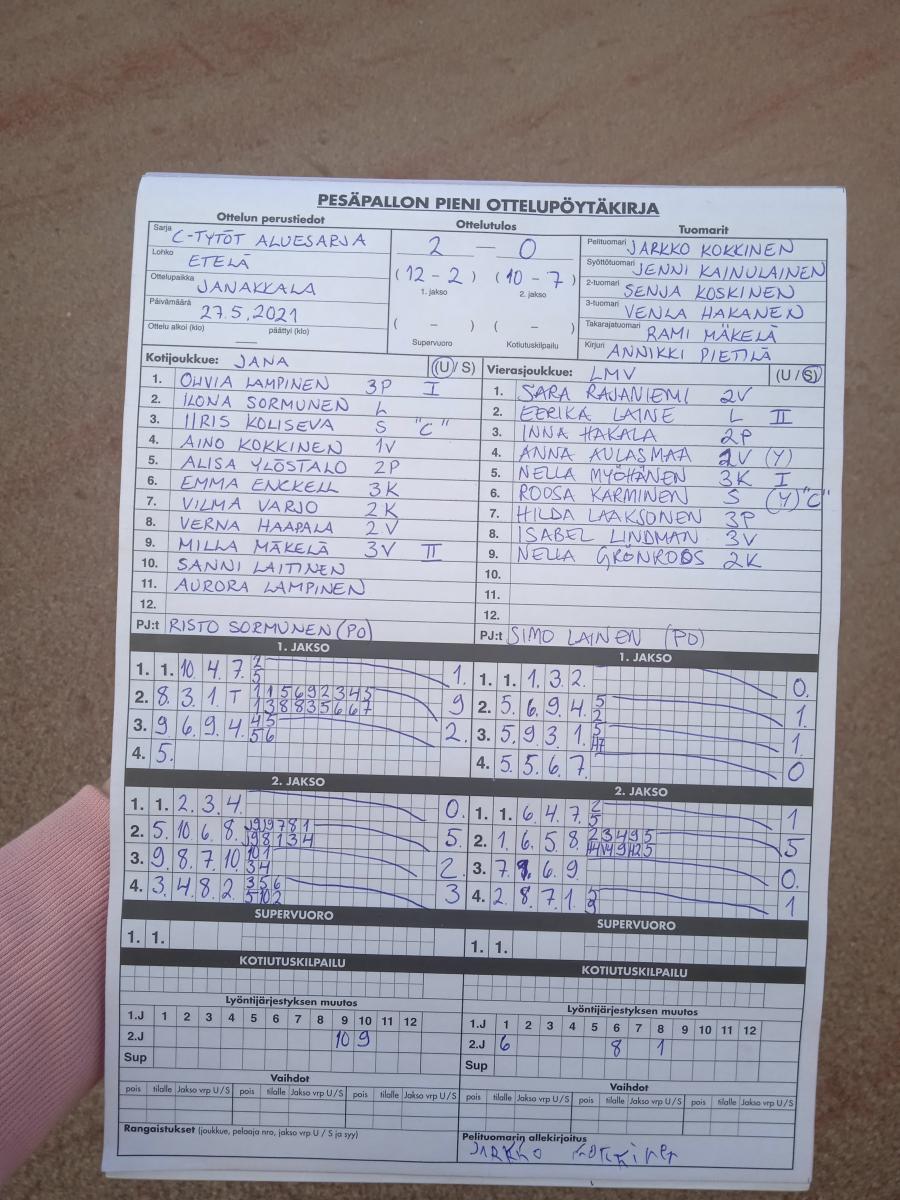 PESÄPALLON PIENI OTTELUPÖYTÄKIRJA
Ottelun perustiedot Ottelutulos Tuomarit
Sarja C-TYTÖT ALUESARJA
Lohko ETELÄ
Ottelupaikka JANAKKALA
Päivämäärä 27.5.2021
Ottelu alkoi (klo) päättyi (klo)
2 — 0
(12 - 2) (10 - 7)
1. jakso 2. jakso
( - ) ( - )
Supervuoro Kotiutuskilpailu
Pelituomari JARKKO KOKKINEN
Syöttötuomari JENNI KAINULAINEN
2-tuomari SENJA KOSKINEN
3-tuomari VENLA HAKANEN
Takarajatuomari RAMI MÄKELÄ
Kirjuri ANNIKKI PIETILÄ
Kotijoukkue: JANA (U / S)
1. OLIVIA LAMPINEN 3P I
2. ILONA SORMUNEN L
3. IIRIS KOLISEVA S "C"
4. AINO KOKKINEN 1V
5. ALISA YLÖSTALO 2P
6. EMMA ENCKELL 3K
7. VILMA VARJO 2K
8. VERNA HAAPALA 2V
9. MILLA MÄKELÄ 3V II
10. SANNI LAITINEN
11. AURORA LAMPINEN
12.
PJ:t RISTO SORMUNEN (PO)
Vierasjoukkue: LMV (U / S)
1. SARA RAJANIEMI 2V
2. EERIKA LAINE L II
3. INNA HAKALA 2P
4. ANNA AULASMAA V (Y)
5. NELLA MYÖHÄNEN 3K I
6. ROOSA KARMINEN S (Y) "C"
7. HILDA LAAKSONEN 3P
8. ISABEL LINDMAN 3V
9. NELLA GRÖNROOS 2K
10.
11.
12.
PJ:t SIMO LAINEN (PO)
1. JAKSO
1. 1. 10 4. 7. 2 1.
5
2. 8. 3. 1. T 1 1 5 6 9 2 3 4 5 9
1 3 8 8 3 5 6 6 7
3. 9. 6. 9. 4. 4 5 2.
5 6
4. 5.
1. JAKSO
1. 1. 1. 3. 2. 0.
2. 5. 6. 9. 4. 5 1.
2
3. 5. 9 3 1. 5 1
4. 5 5. 6. 7. 0
2. JAKSO
1. 1. 2. 3. 4. 0.
2. 5. 10 6. 8. 5.
3. 9. 8. 7. 10 10 1 2.
3 4
4. 3. 4. 8. 2. 3 5 6 3
5 10 2
2. JAKSO
1. 1. 6. 4. 7. 2 1
5
2. 1. 6. 5. 8. 2 3 4 9 5 5
3. 7. 6. 9 0.
4. 2. 8. 7. 1. 1
SUPERVUORO
1. 1.
KOTIUTUSKILPAILU
SUPERVUORO
1. 1.
KOTIUTUSKILPAILU
Lyöntijärjestyksen muutos
1.J 1 2 3 4 5 6 7 8 9 10 11 12
2.J 10 9
Sup
Lyöntijärjestyksen muutos
1.J 1 2 3 4 5 6 7 8 9 10 11 12
2.J 6 8 1
Sup
Vaihdot
pois tilalle Jakso vrp U / S pois tilalle Jakso vrp U / S pois tilalle Jakso vrp U / S
Vaihdot
pois tilalle Jakso vrp U / S pois tilalle Jakso vrp U / S pois tilalle Jakso vrp U / S
Rangaistukset (joukkue, pelaaja nro, jakso vrp U / S ja syy)
Pelituomarin allekirjoitus
JARKKO